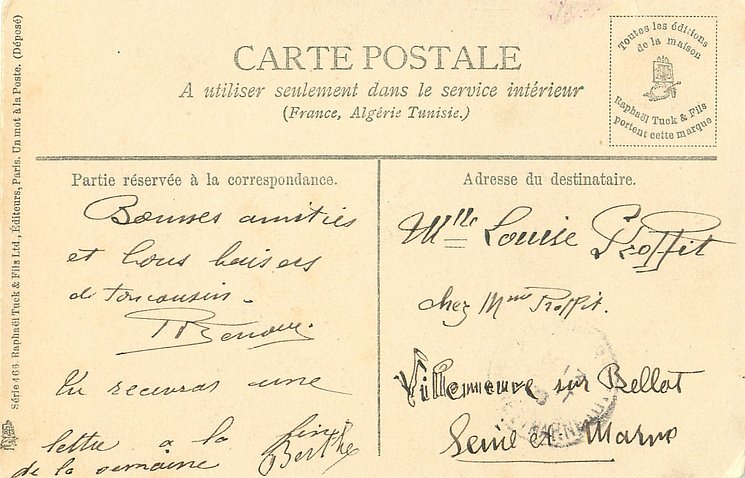 CARTE POSTALE
A utiliser seulement dans le service intérieur
(France, Algérie Tunisie.)
Toutes les éditions
de la maison
Raphaël Tuck & Fils
portent cette marque
Série 166. Raphaël Tuck & Fils Ltd, Éditeurs, Paris. Un mot à la Poste. (Déposé)
Partie réservée à la correspondance.
Bonnes amitiés
et bons baisers
de ton cousin.
Tu recevras une
lettre a la fin
de la semaine Berthe
Adresse du destinataire.
Mlle Louise Proffit
chez Mme Proffit.
Villeneuve sur Bellot
Seine et Marne